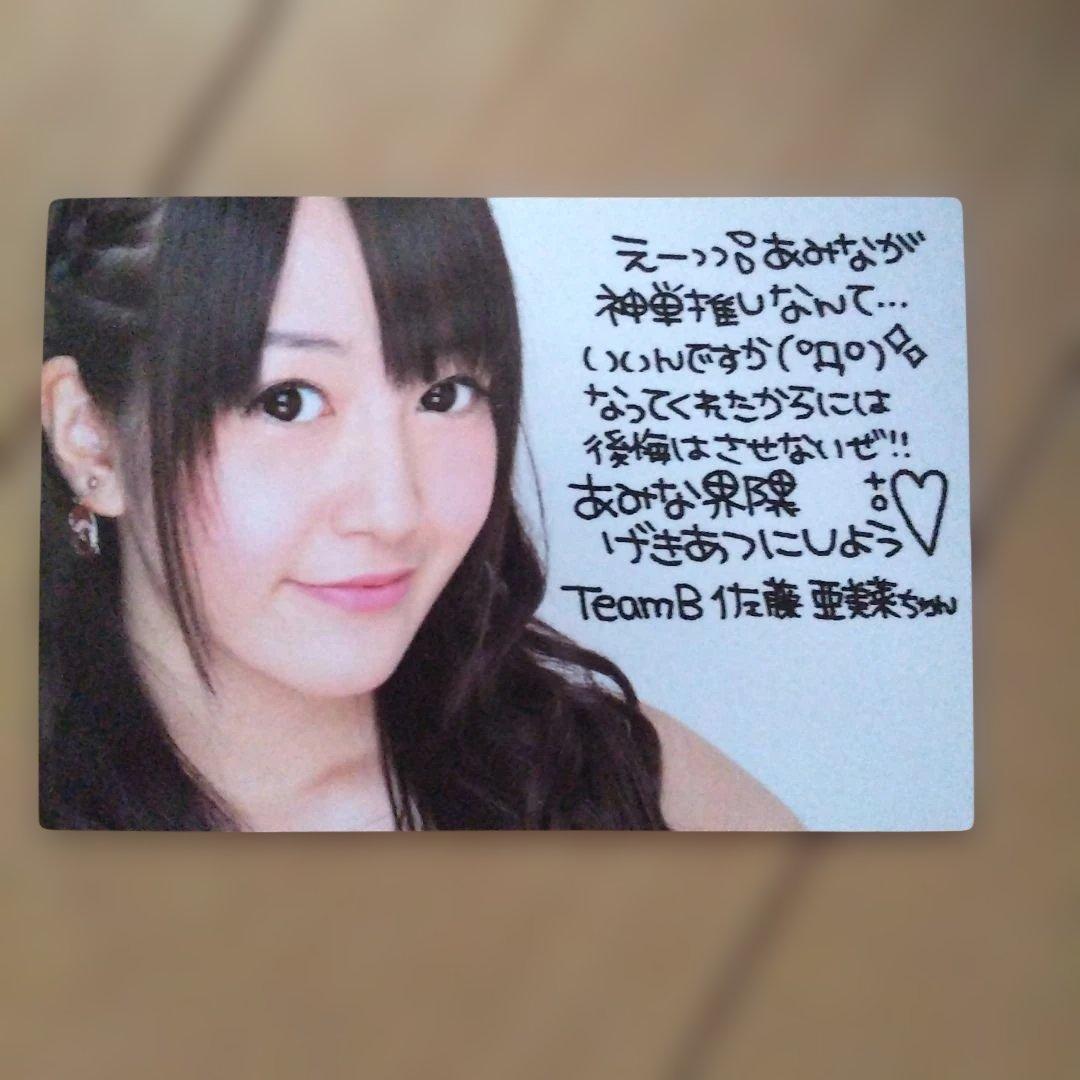 えーっっあみなが
神単推しなんて…
いいんですか(°Д°)
なってくれたからには
後悔はさせないぜ!!
あみな界隈
げきあつにしよう♡
TeamB 佐藤 亜美菜ちゃん